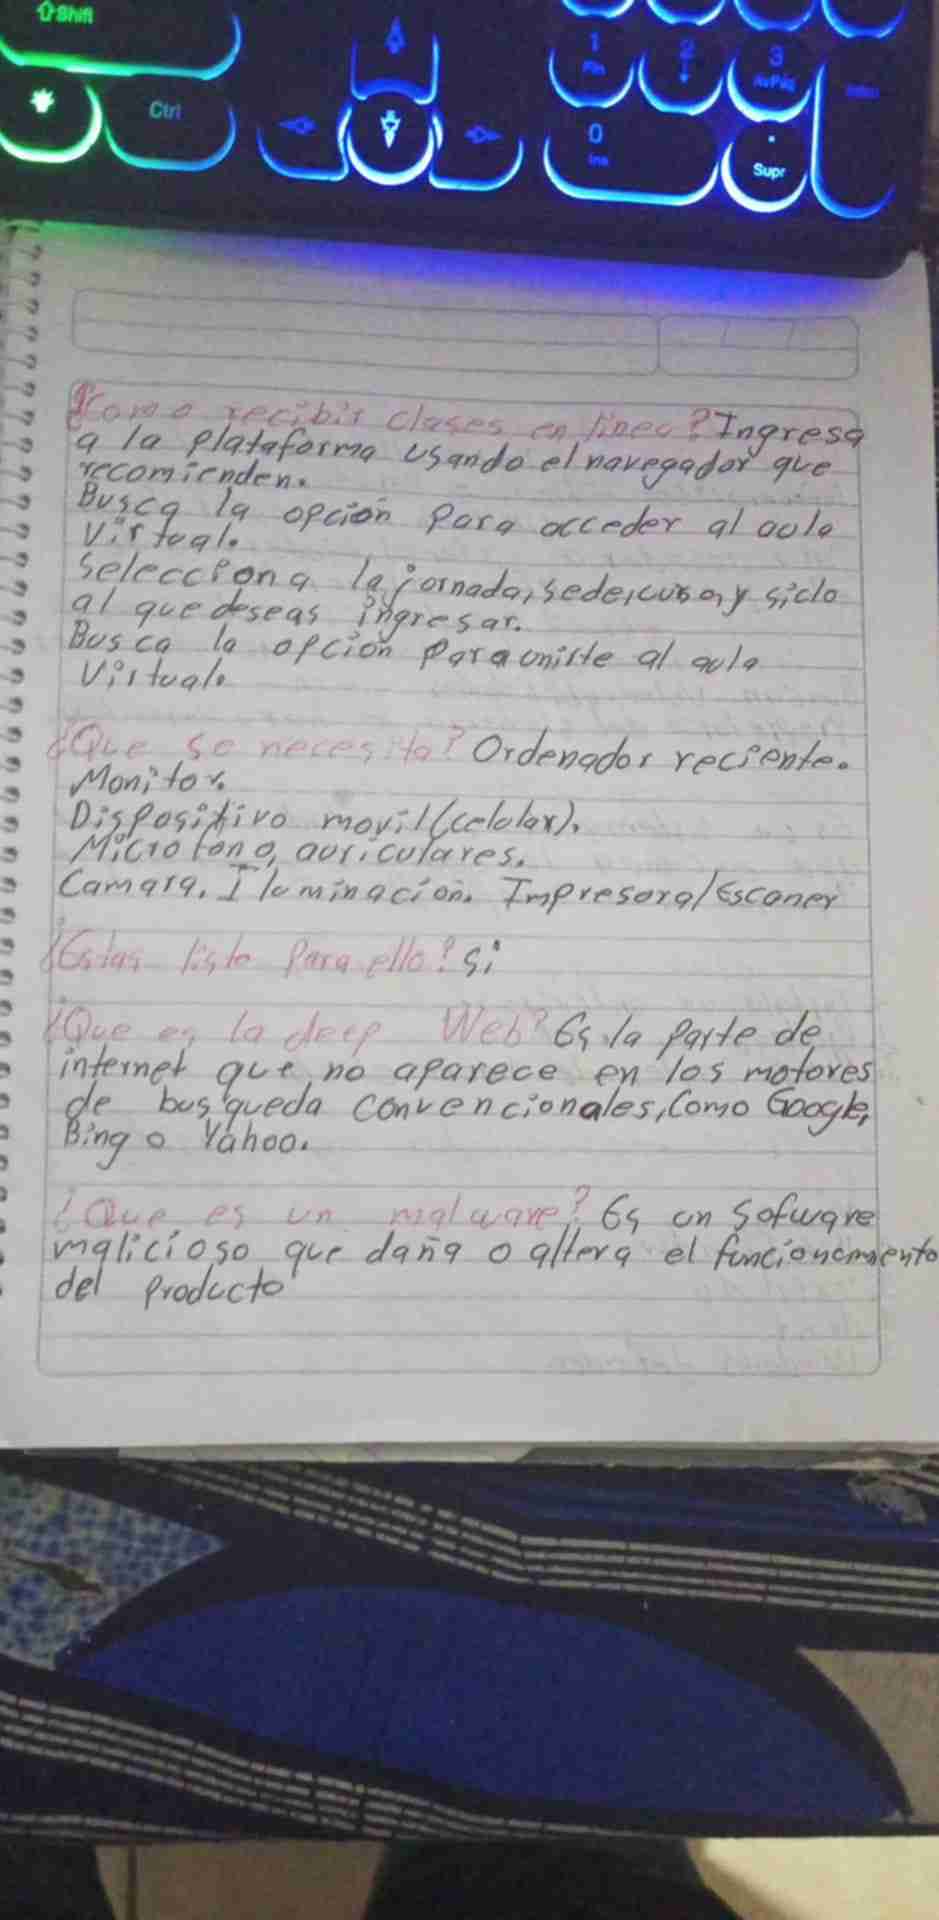 Shift
Ctrl
1
Fin
2
3
AvPág
0
Ins
.
Supr
¿Como recibir clases en linea? Ingresa
a la plataforma usando el navegador que
recomienden.
Busca la opción para acceder al aula
virtual.
Selecciona la jornada, sede, curso, y siclo
al que deseas ingresar.
Busca la opción para unirte al aula
virtual.
¿Que se necesita? Ordenador reciente.
Monitor.
Dispositivo movil (celular).
Microfono, auriculares.
Camara. Iluminación. Impresora/Escaner
¿Estas listo para ello? Si
¿Que es la deep Web? Es la parte de
internet que no aparece en los motores
de busqueda convencionales, Como Google,
Bing o Yahoo.
¿Que es un malware? Es un Sofware
malicioso que daña o altera el funcionamiento
del producto